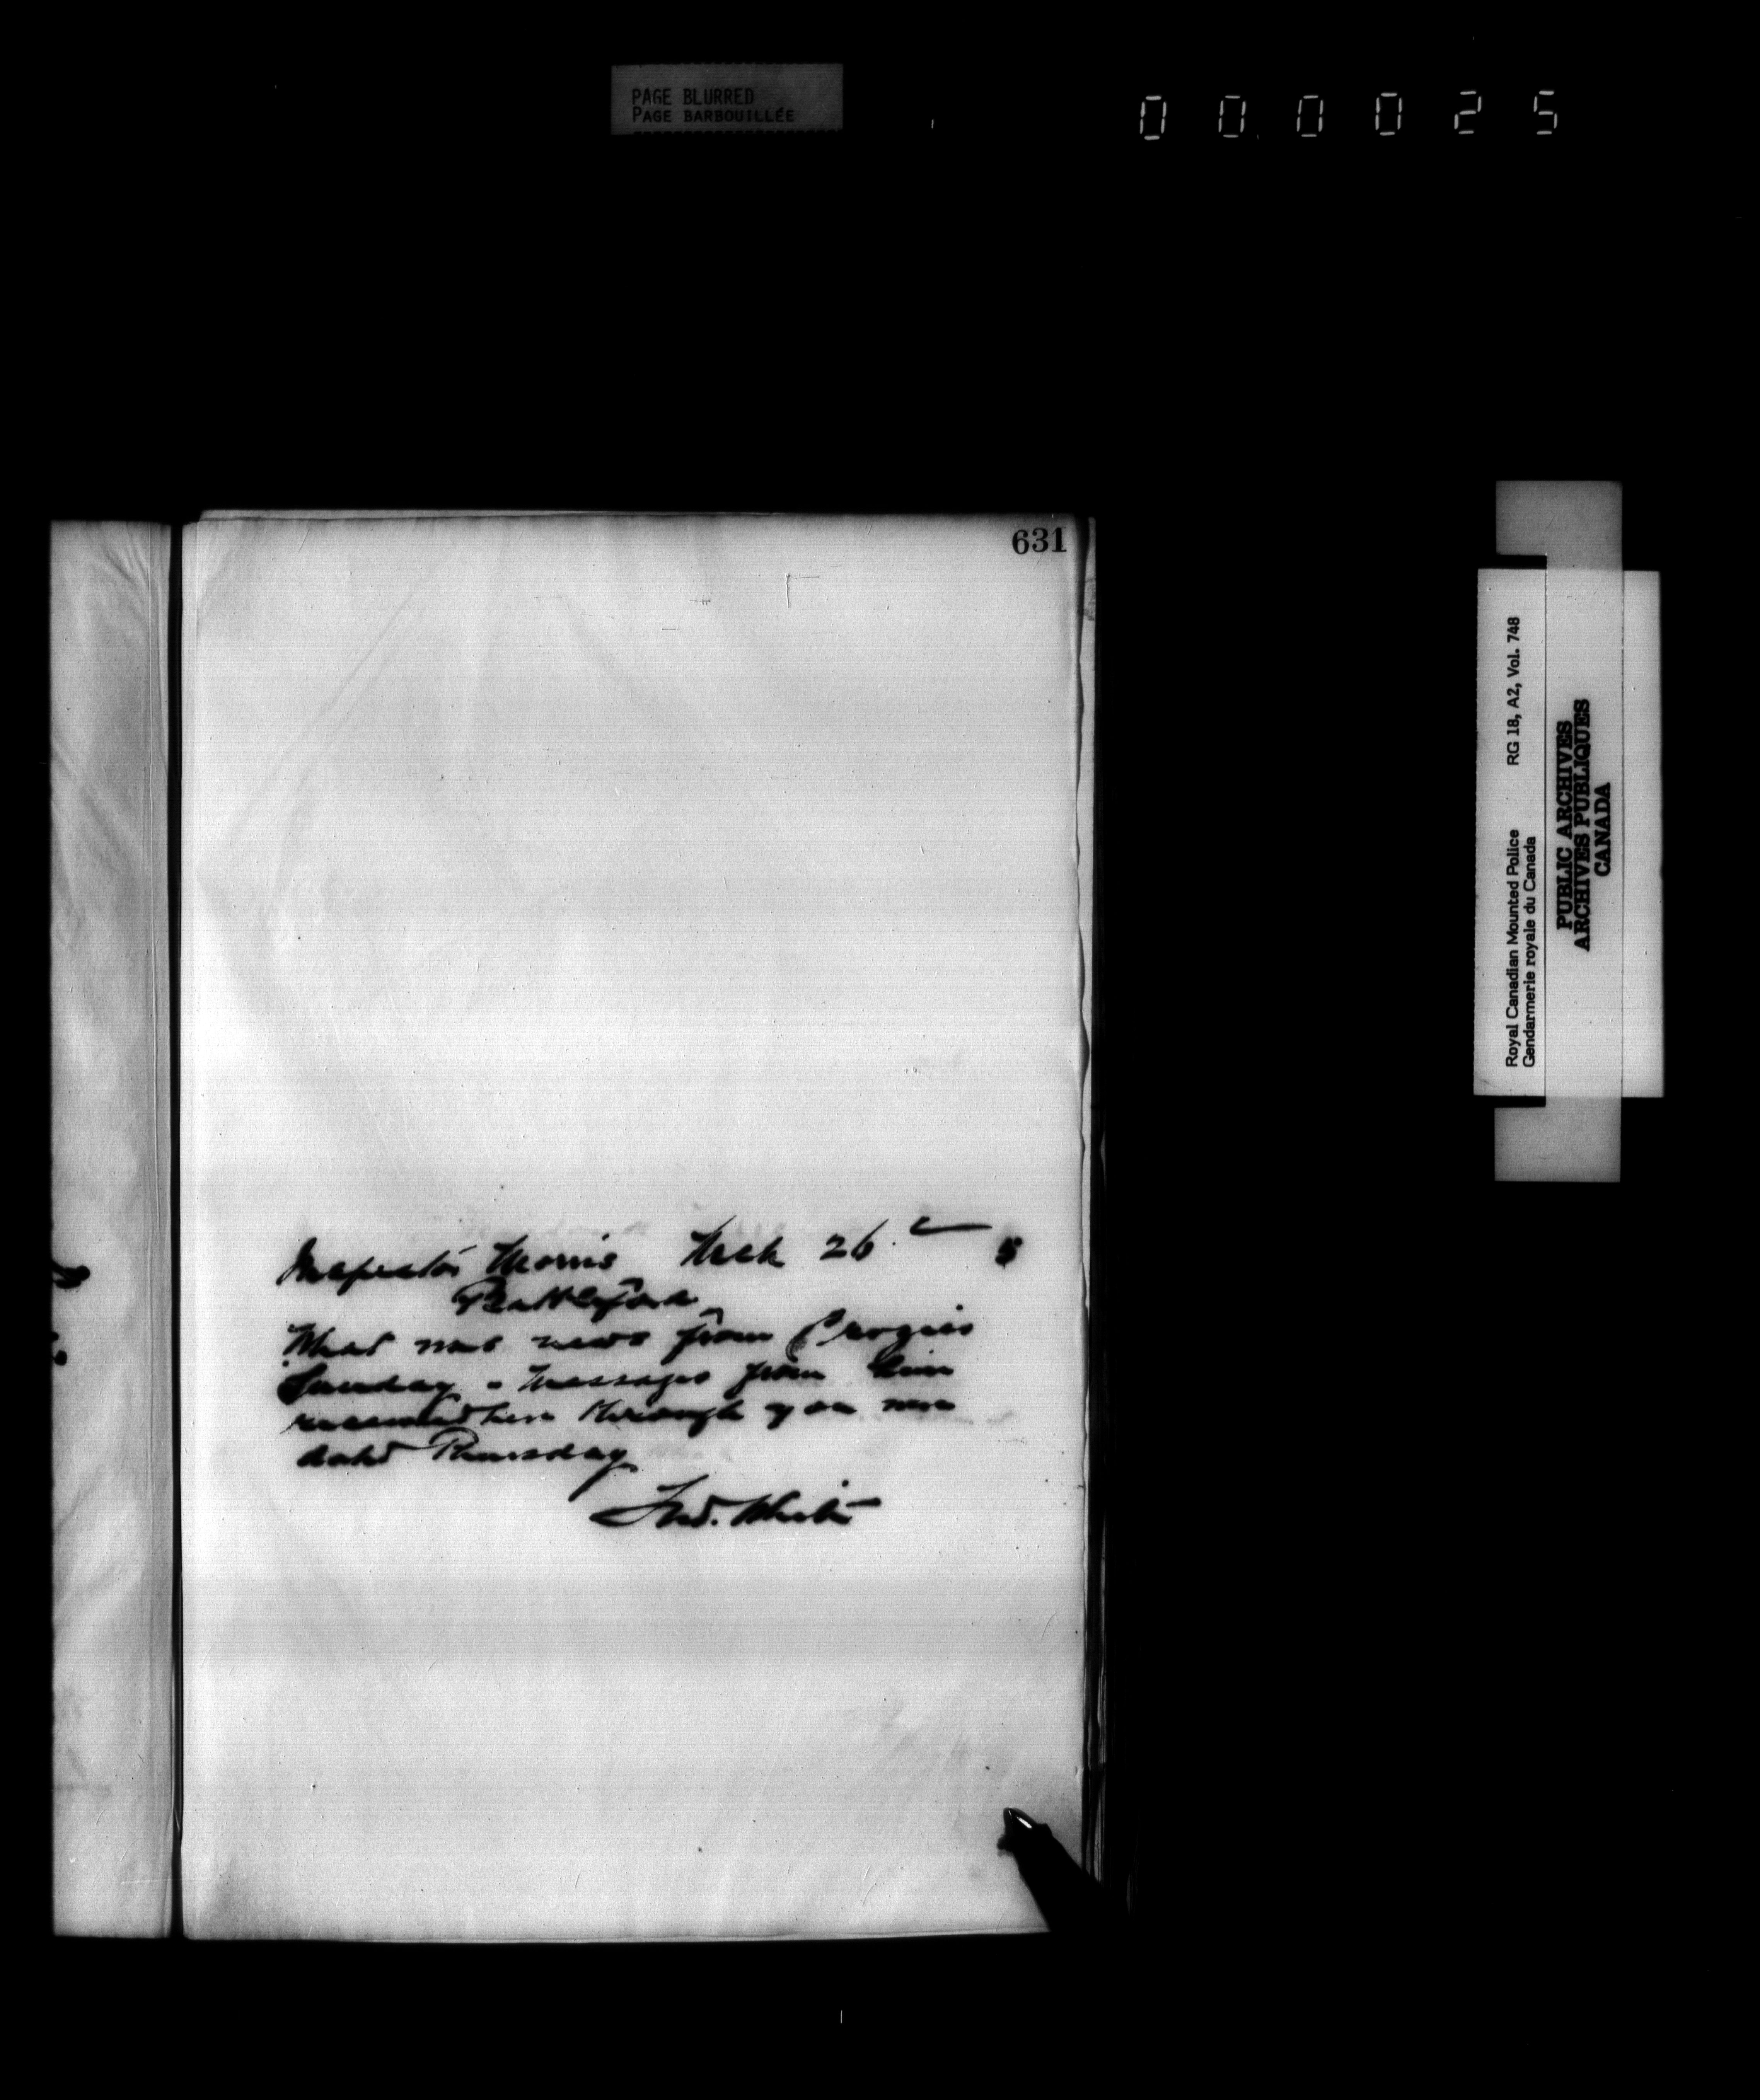 PAGE BLURRED
PAGE BARBOUILLÉE
000025
631
Inspector Morris Mch 26 5
Battleford
What was news from Crozier
Sunday - Messages from him
received here through you were
dated Thursday
Fred. White
Royal Canadian Mounted Police RG 18, A2, Vol. 748
Gendarmerie royale du Canada
PUBLIC ARCHIVES
ARCHIVES PUBLIQUES
CANADA